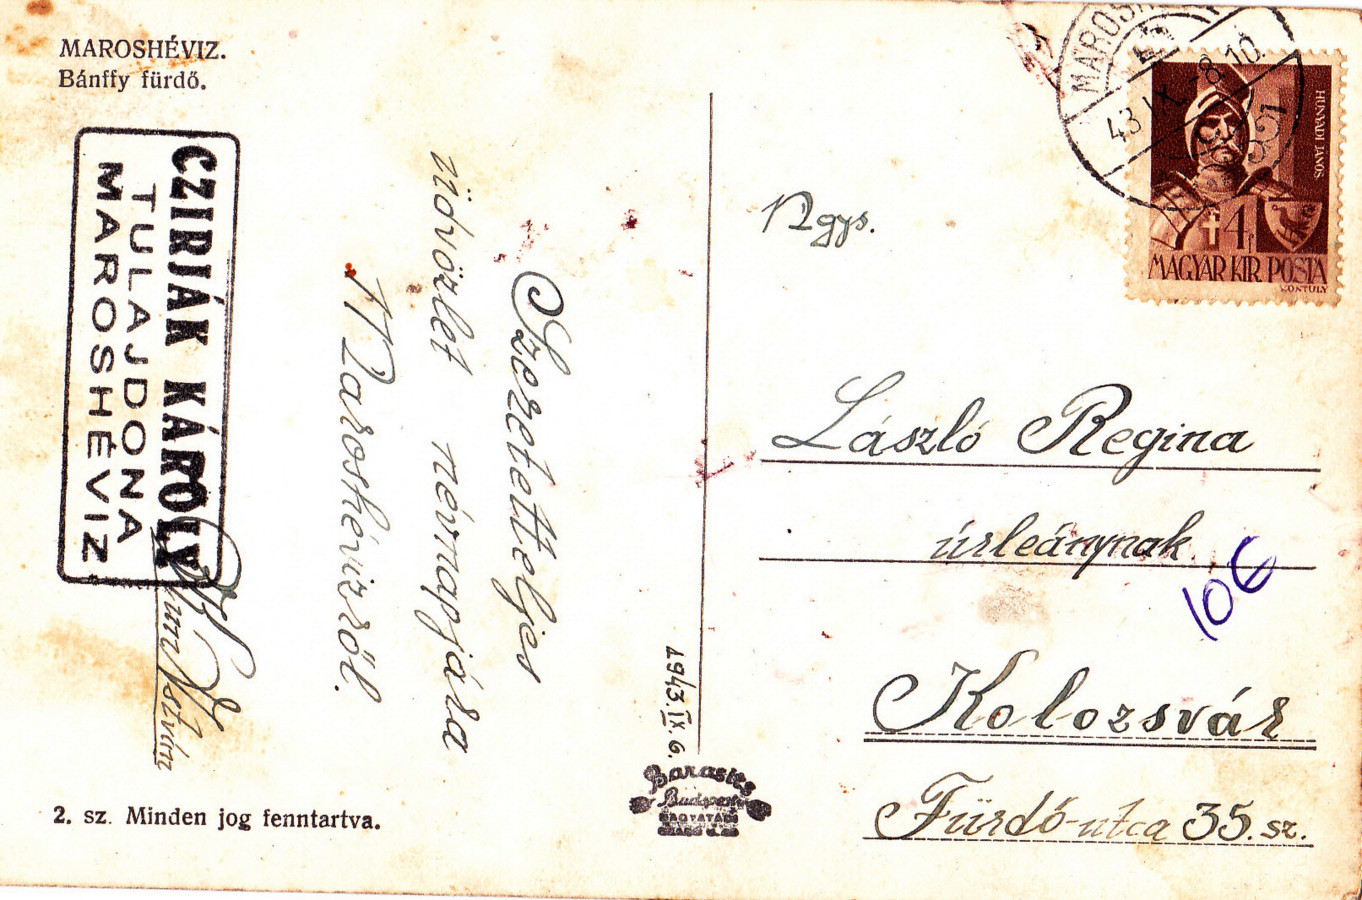 MAROSHÉVIZ.
Bánffy fürdő.
CZIRJÁK KÁROLY
TULAJDONA
MAROSHÉVIZ
Szeretettteljes
üdvözlet névnapjára
Maroshévizről.
István
2. sz. Minden jog fenntartva.
1943. IX. 6.
Barasits
Budapest
MAROSH
43 IX. -8. 10.
HUNYADI JÁNOS
4f
MAGYAR KIR. POSTA
KONTULY
Ngys.
László Regina
úrleánynak
10€
Kolozsvár
Fürdő-utca 35. sz.